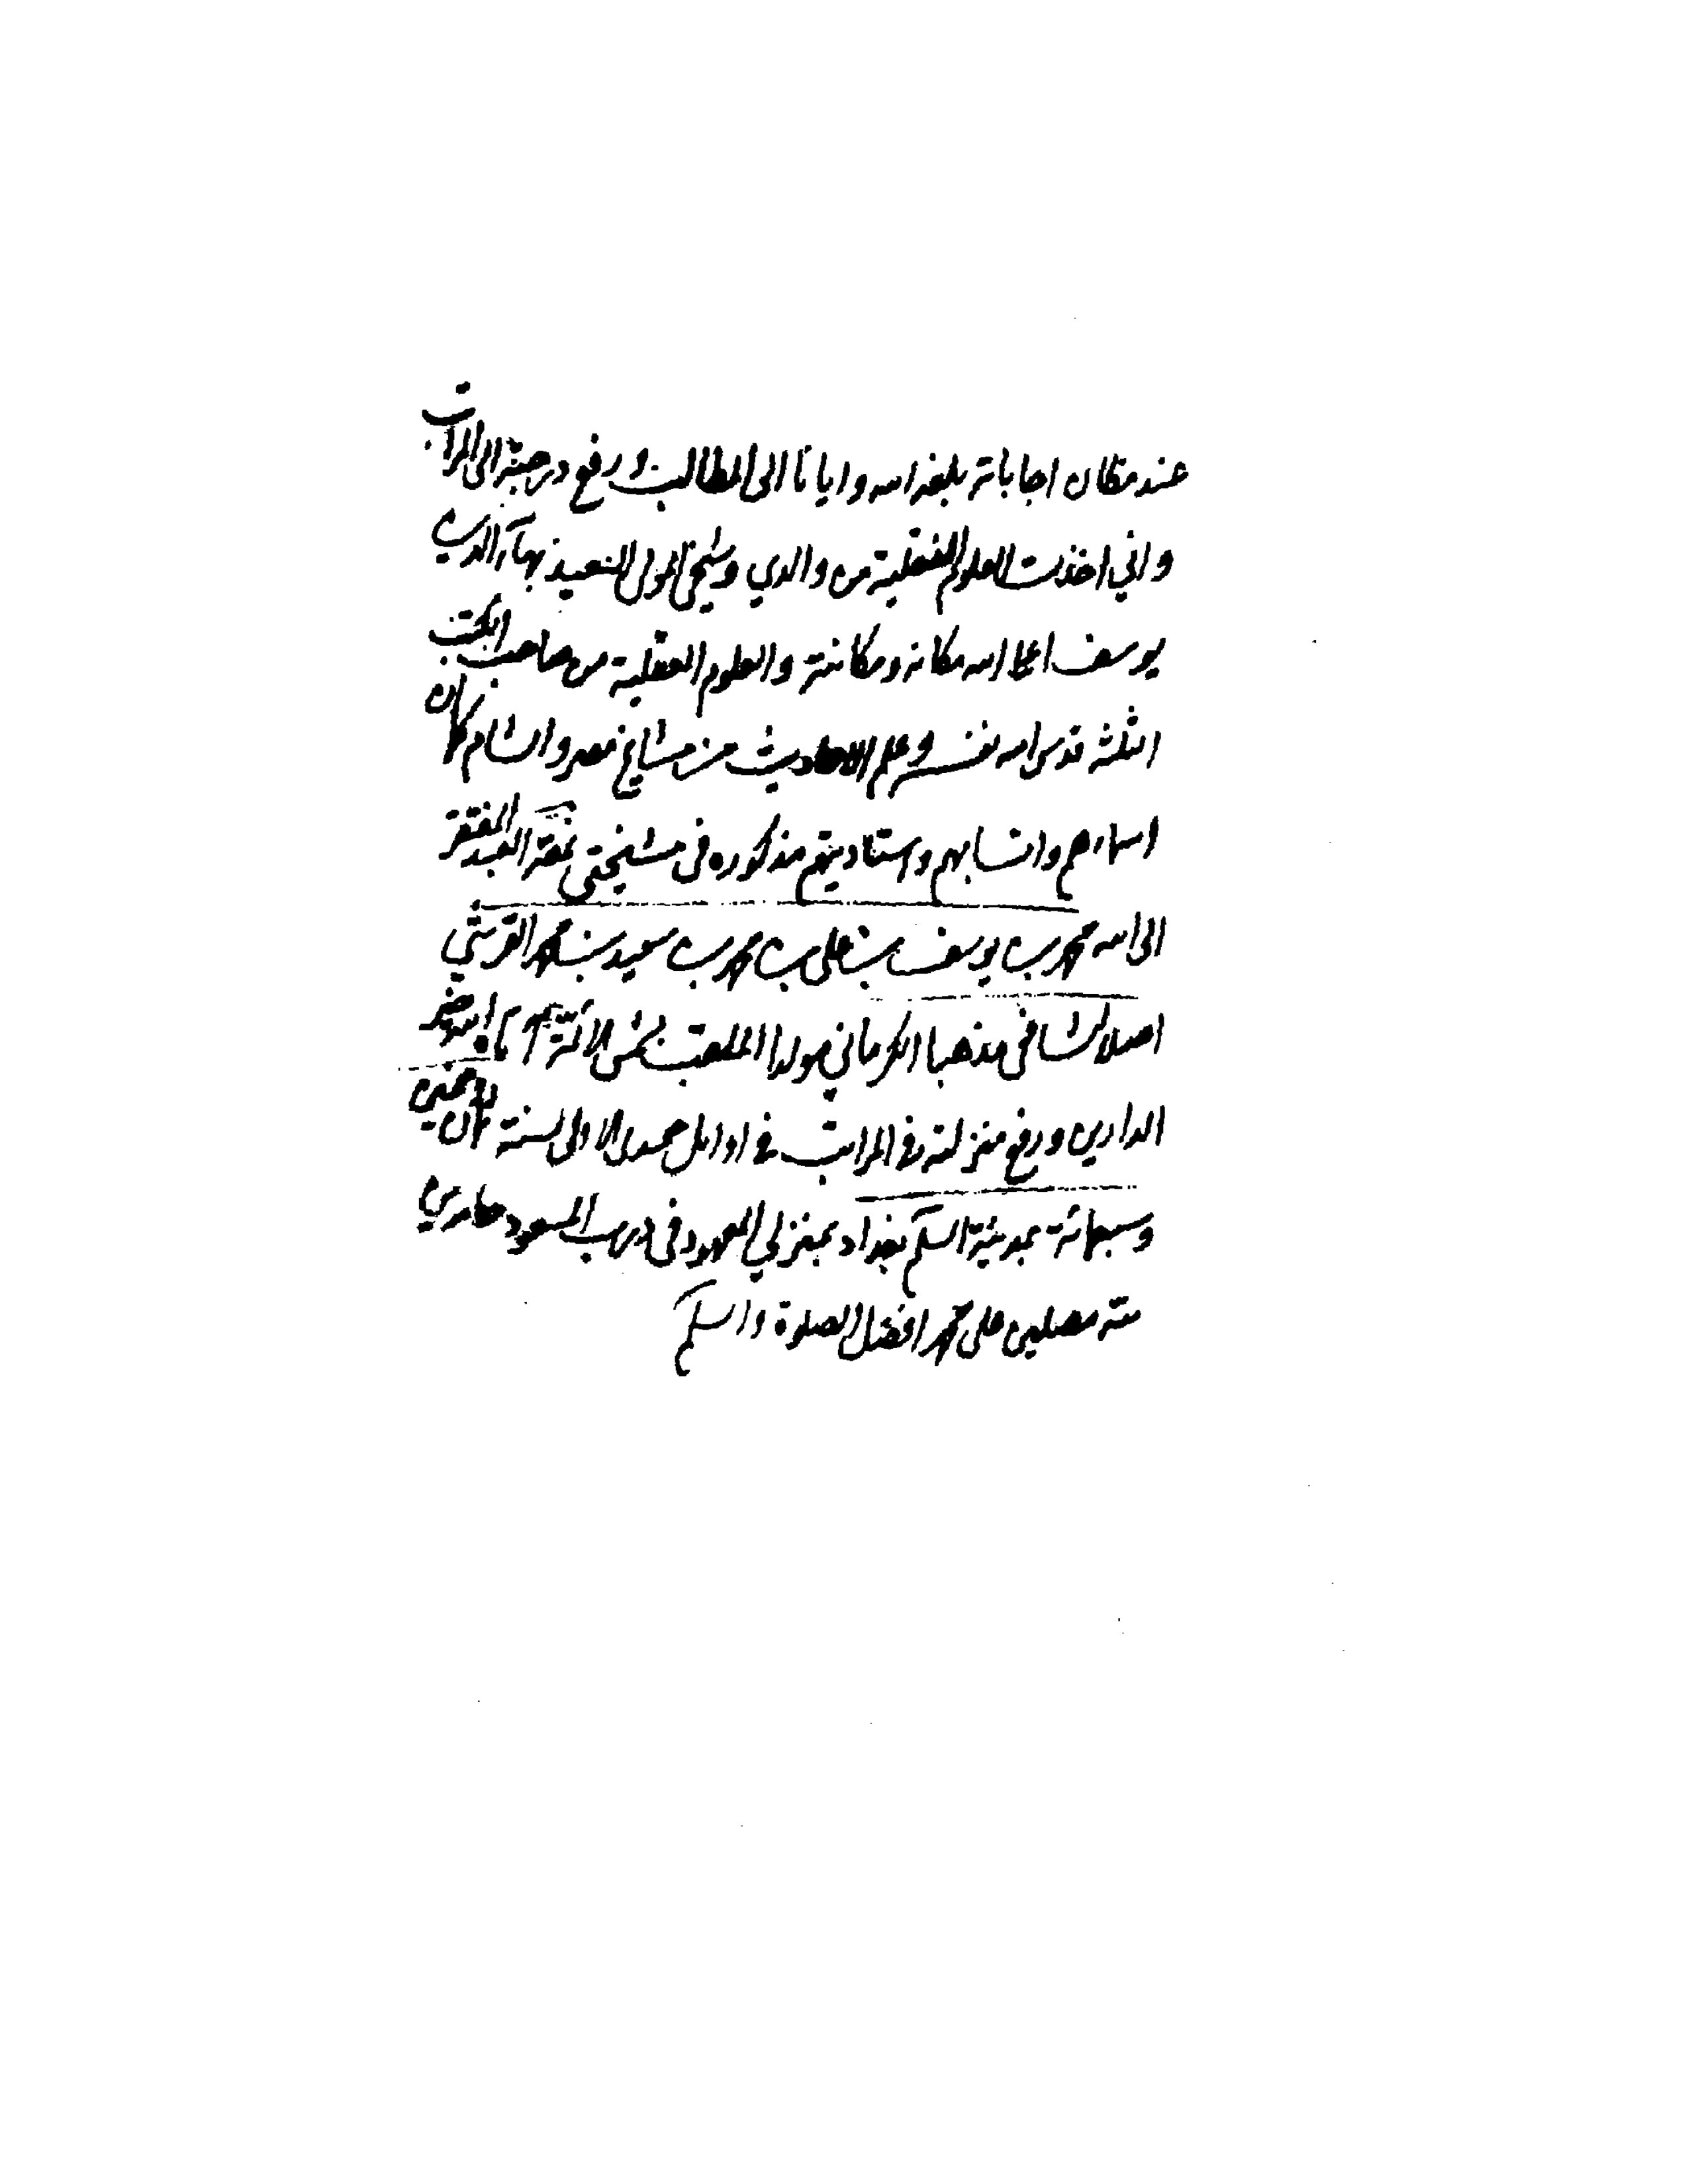 عند مكان اجاباته بلغه الله وايانا الى المطالب ورفع درجته الى المراتب
واني اخذت العلوم النقلية من والدي وشيخي المولى السعيد بهاء الدين
يوسف اعلا الله مكانه ومكانته والعلوم العقلية من صاحب الكتب
الثلثة قدس الله نفسه وعلم الاحاديث من مشايخ مصر والشام كان
اسماءهم وانسابهم واستاديتهم مذكوره في مشيختي نمقه العبد المفتقر
الى الله محمد بن يوسف بن علي بن محمد بن سعيد بن محمد القرشي
اصلا الشافعي مذهبا الكرماني مولدا الملقب بشمس الائمة الله
الدارين ورفع منزلته في المراتب في اوايل جمدى الاولى لسنة ثمان وخمسين
وسبعمائة بمدينة السلم بغداد بمنزلي المعهود في درب المسعود حامدي
لله مصلين على محمد افضل الصلوة والسلم